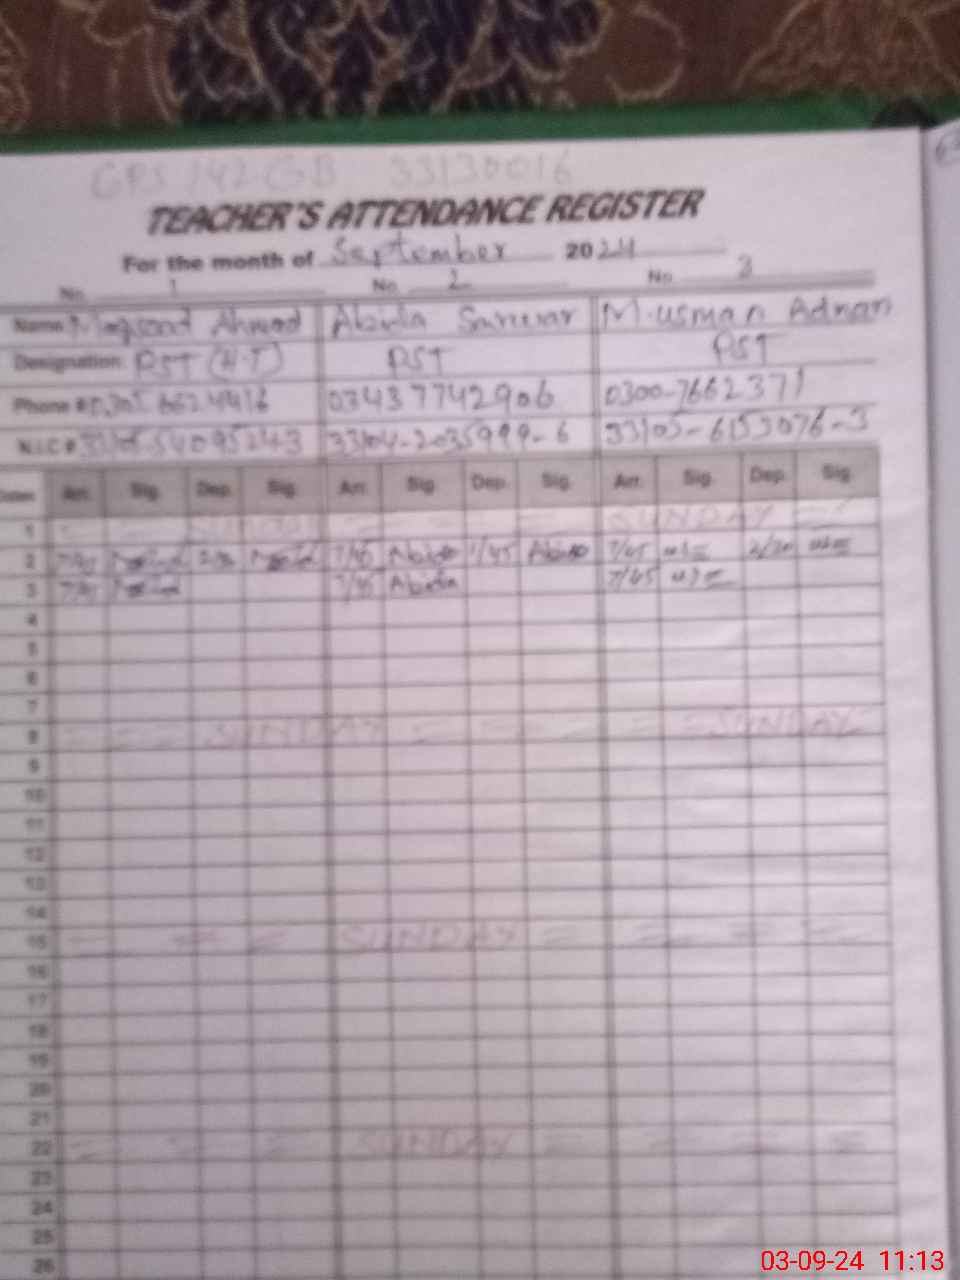 GPS 142 GB 33130016
TEACHER'S ATTENDANCE REGISTER
For the month of September 2024
No. 1 No. 2 No. 3
Name Maqsood Ahmad Abida Sarwar M. Usman Adnan
Designation PST (H.T) PST PST
Phone # 0305 6624416 03437742906 0300-7662371
N.I.C # 33104-2035999-6
Dates Arr. Sig. Dep. Sig. Arr. Sig. Dep. Sig. Arr. Sig. Dep. Sig.
1 = = SUNDAY = = = = = SUNDAY =
2 7/45 7/45 Abida 1/45 Abida 7/45
3 7/45 7/45 Abida 7/45
4
5
6
7
8 = = = SUNDAY = = = = = = SUNDAY
9
10
11
12
13
14
15 = = = SUNDAY = = = =
16
17
18
19
20
21
22 = = = SUNDAY = = = =
23
24
25
26
03-09-24 11:13